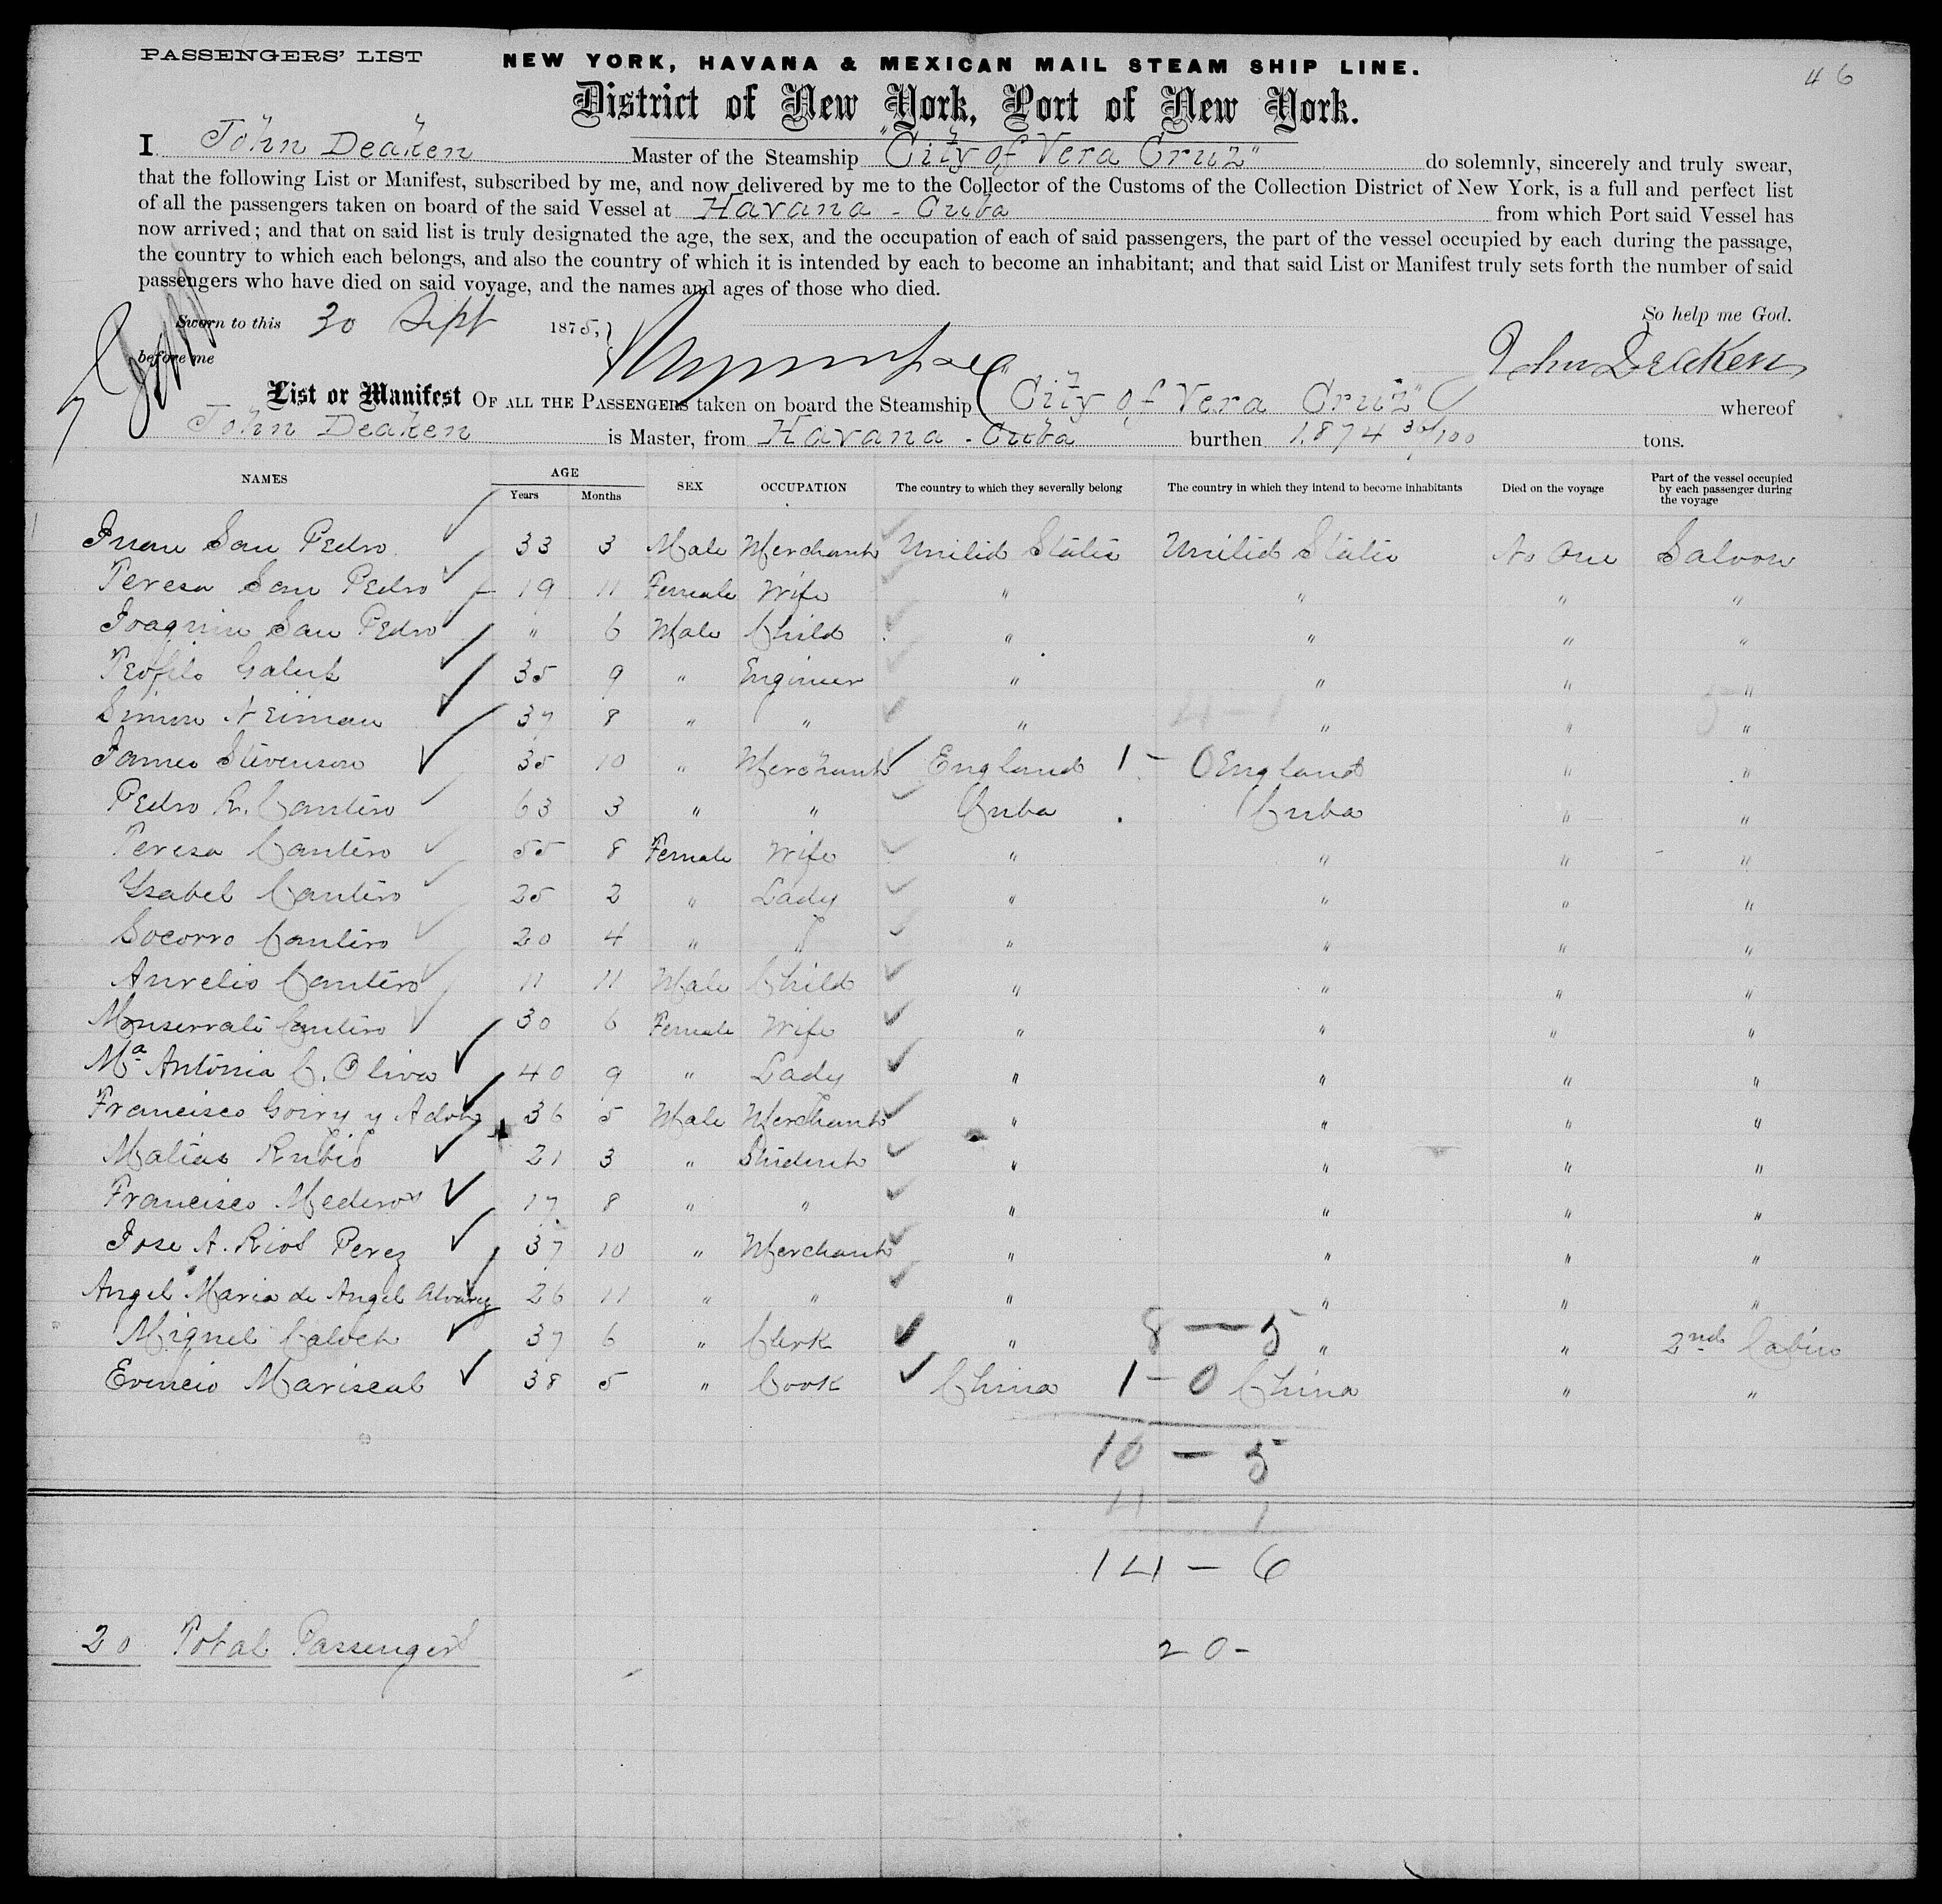 PASSENGERS' LIST
NEW YORK, HAVANA & MEXICAN MAIL STEAM SHIP LINE.
46
District of New York, Port of New York.
I John Deaken Master of the Steamship "City of Vera Cruz" do solemnly, sincerely and truly swear,
that the following List or Manifest, subscribed by me, and now delivered by me to the Collector of the Customs of the Collection District of New York, is a full and perfect list
of all the passengers taken on board of the said Vessel at Havana - Cuba from which Port said Vessel has
now arrived; and that on said list is truly designated the age, the sex, and the occupation of each of said passengers, the part of the vessel occupied by each during the passage,
the country to which each belongs, and also the country of which it is intended by each to become an inhabitant; and that said List or Manifest truly sets forth the number of said
passengers who have died on said voyage, and the names and ages of those who died.
Sworn to this 30 Sept 1875, So help me God.
before me John Deaken
List or Manifest OF ALL THE PASSENGERS taken on board the Steamship "City of Vera Cruz" whereof
John Deaken is Master, from Havana - Cuba burthen 1.874 30/100 tons.
NAMES AGE Years Months SEX OCCUPATION The country to which they severally belong The country in which they intend to become inhabitants Died on the voyage Part of the vessel occupied by each passenger during the voyage
Juan San Pedro 33 3 Male Merchant United States United States No One Saloon
Teresa San Pedro 19 11 Female Wife " " " "
Joaquin San Pedro " 6 Male Child " " " "
Teofilo 35 9 " Engineer " " " "
Simon Neiman 37 8 " " " 4-1 " " "
James Stevenson 35 10 " Merchant England 1 - 0 England " "
Pedro R. Cantero 63 3 " " Cuba Cuba " "
Teresa Cantero 55 8 Female Wife " " " "
Ysabel Cantero 25 2 " Lady " " " "
Socorro Cantero 20 4 " " " " " "
Aurelio Cantero 11 11 Male Child " " " "
Monserrate Cantero 30 6 Female Wife " " " "
Ma Antonia C. Oliva 40 9 " Lady " " " "
Francisco Goiry y 36 5 Male Merchant " " " "
Matias Rubio 21 3 " Student " " " "
Francisco Mederos 17 8 " " " " " "
Jose A. Rios Perez 37 10 " Merchant " " " "
Angel Maria de Angel Alvarez 26 11 " " " " " "
Miguel 37 6 " Clerk " 8 - 5 " " 2nd Cabin
Evencio Mariscal 38 5 " Cook China 1 - 0 China " "
10 - 5
4 - 1
14 - 6
20 Total Passengers 20-